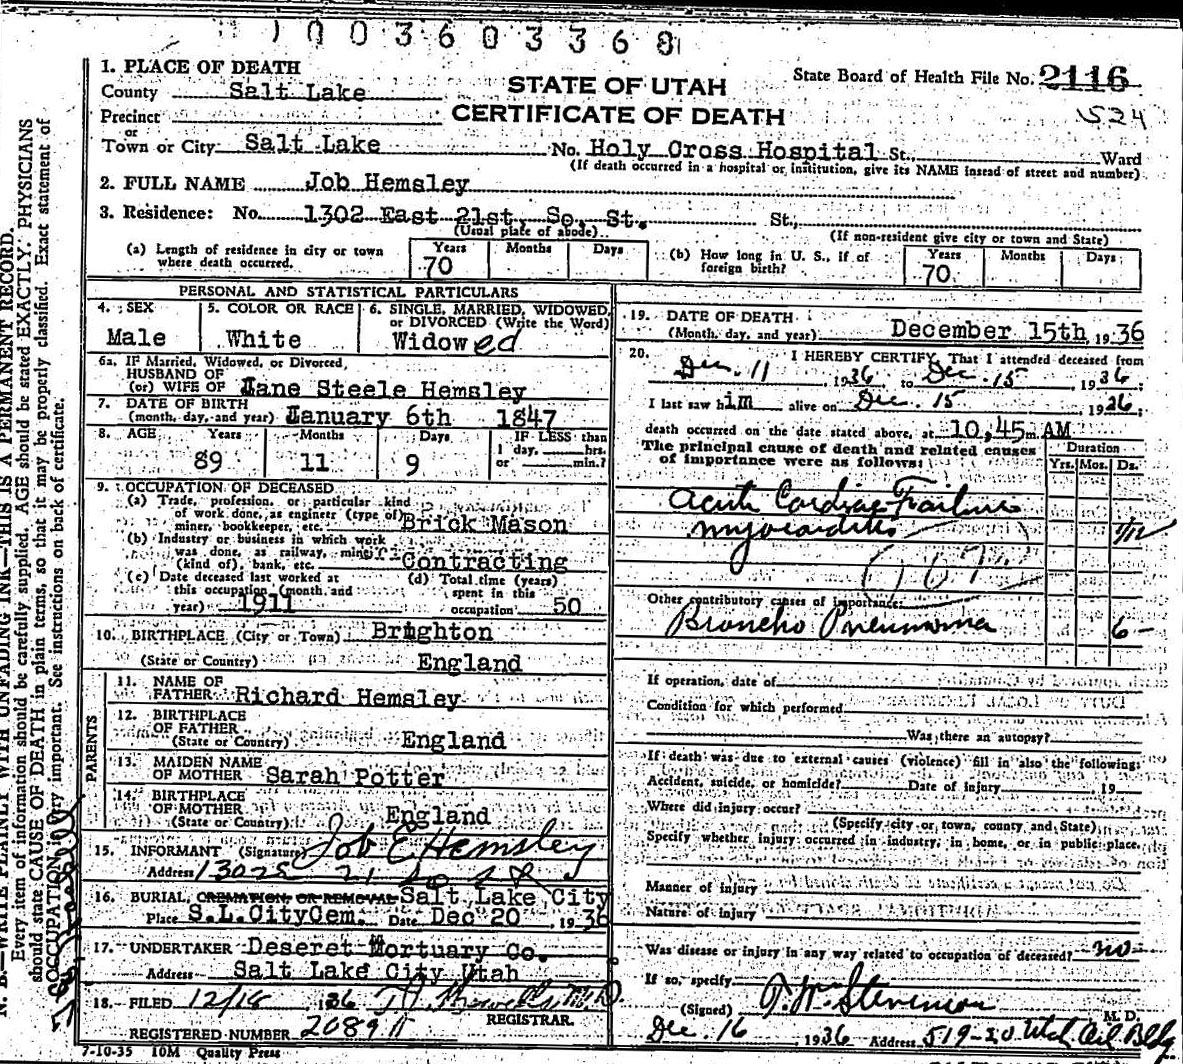 1003603368
1. PLACE OF DEATH
County Salt Lake
Precinct
or
Town or City Salt Lake
STATE OF UTAH
CERTIFICATE OF DEATH
State Board of Health File No. 2116
1524
No. Holy Cross Hospital St., Ward
(If death occurred in a hospital or institution, give its NAME instead of street and number)
2. FULL NAME Job Hemsley
3. Residence: No. 1302 East 21st, So, St. St.,
(Usual place of abode)
(If non-resident give city or town and State)
(a) Length of residence in city or town where death occurred. Years 70 Months Days
(b) How long in U. S., if of foreign birth? Years 70 Months Days
PERSONAL AND STATISTICAL PARTICULARS
4. SEX Male
5. COLOR OR RACE White
6. SINGLE, MARRIED, WIDOWED, or DIVORCED (Write the Word) Widowed
6a. IF Married, Widowed, or Divorced,
HUSBAND OF
(or) WIFE OF Jane Steele Hemsley
7. DATE OF BIRTH
(month, day, and year) January 6th 1847
8. AGE Years Months Days IF LESS than
89 11 9 1 day, hrs.
or min.?
9. OCCUPATION OF DECEASED
(a) Trade, profession, or particular kind
of work done, as engineer (type of)
miner, bookkeeper, etc. Brick Mason
(b) Industry or business in which work
was done, as railway, mining
(kind of), bank, etc. Contracting
(c) Date deceased last worked at
this occupation (month and
year) 1911
(d) Total time (years)
spent in this
occupation 50
10. BIRTHPLACE (City or Town) Brighton
(State or Country) England
PARENTS
11. NAME OF
FATHER Richard Hemsley
12. BIRTHPLACE
OF FATHER
(State or Country) England
13. MAIDEN NAME
OF MOTHER Sarah Potter
14. BIRTHPLACE
OF MOTHER
(State or Country) England
15. INFORMANT (Signature) Job E Hemsley
Address 1302 E 21 So
16. BURIAL, CREMATION, OR REMOVAL Salt Lake City
Place S.L.CityCem. Date Dec 20, 1936
17. UNDERTAKER Deseret Mortuary Co.
Address Salt Lake City Utah
18. FILED 12/18 1936 M.D.
REGISTRAR.
REGISTERED NUMBER 2089
7-10-35 10M Quality Press
19. DATE OF DEATH
(Month, day, and year) December 15th, 1936
20. I HEREBY CERTIFY, That I attended deceased from
Dec. 11, 1936, to Dec. 15, 1936
I last saw him alive on Dec. 15 1936;
death occurred on the date stated above, at 10,45m AM
The principal cause of death and related causes
of importance were as follows:
Duration
Yrs. Mos. Ds.
Acute Cardiac Failure
myocarditis
Other contributory causes of importance:
Broncho Pneumonia 6
If operation, date of
Condition for which performed
Was there an autopsy?
If death was due to external causes (violence) fill in also the following:
Accident, suicide, or homicide? Date of injury 19
Where did injury occur?
(Specify city or town, county and State)
Specify whether injury occurred in industry, in home, or in public place.
Manner of injury
Nature of injury
Was disease or injury in any way related to occupation of deceased? no
If so, specify
(Signed) Stevenson M. D.
Dec. 16 1936 Address 519-20 Utah Oil Bldg
N. B.—WRITE PLAINLY WITH UNFADING INK—THIS IS A PERMANENT RECORD.
Every item of information should be carefully supplied. AGE should be stated EXACTLY. PHYSICIANS
should state CAUSE OF DEATH in plain terms, so that it may be properly classified. Exact statement of
OCCUPATION is very important. See instructions on back of certificate.